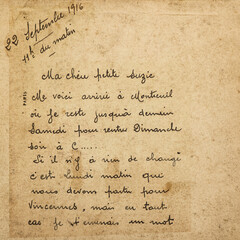 22 Septembre 1916
11h du matin
Ma chère petite Suzie
Me voici arrivé à Montreuil
où je reste jusqu'à demain
Samedi pour rentrer Dimanche
soir à C......
Si il n'y a rien de changé
c'est Lundi matin que
nous devons partir pour
Vincennes, mais en tout
cas je t'enverrais un mot